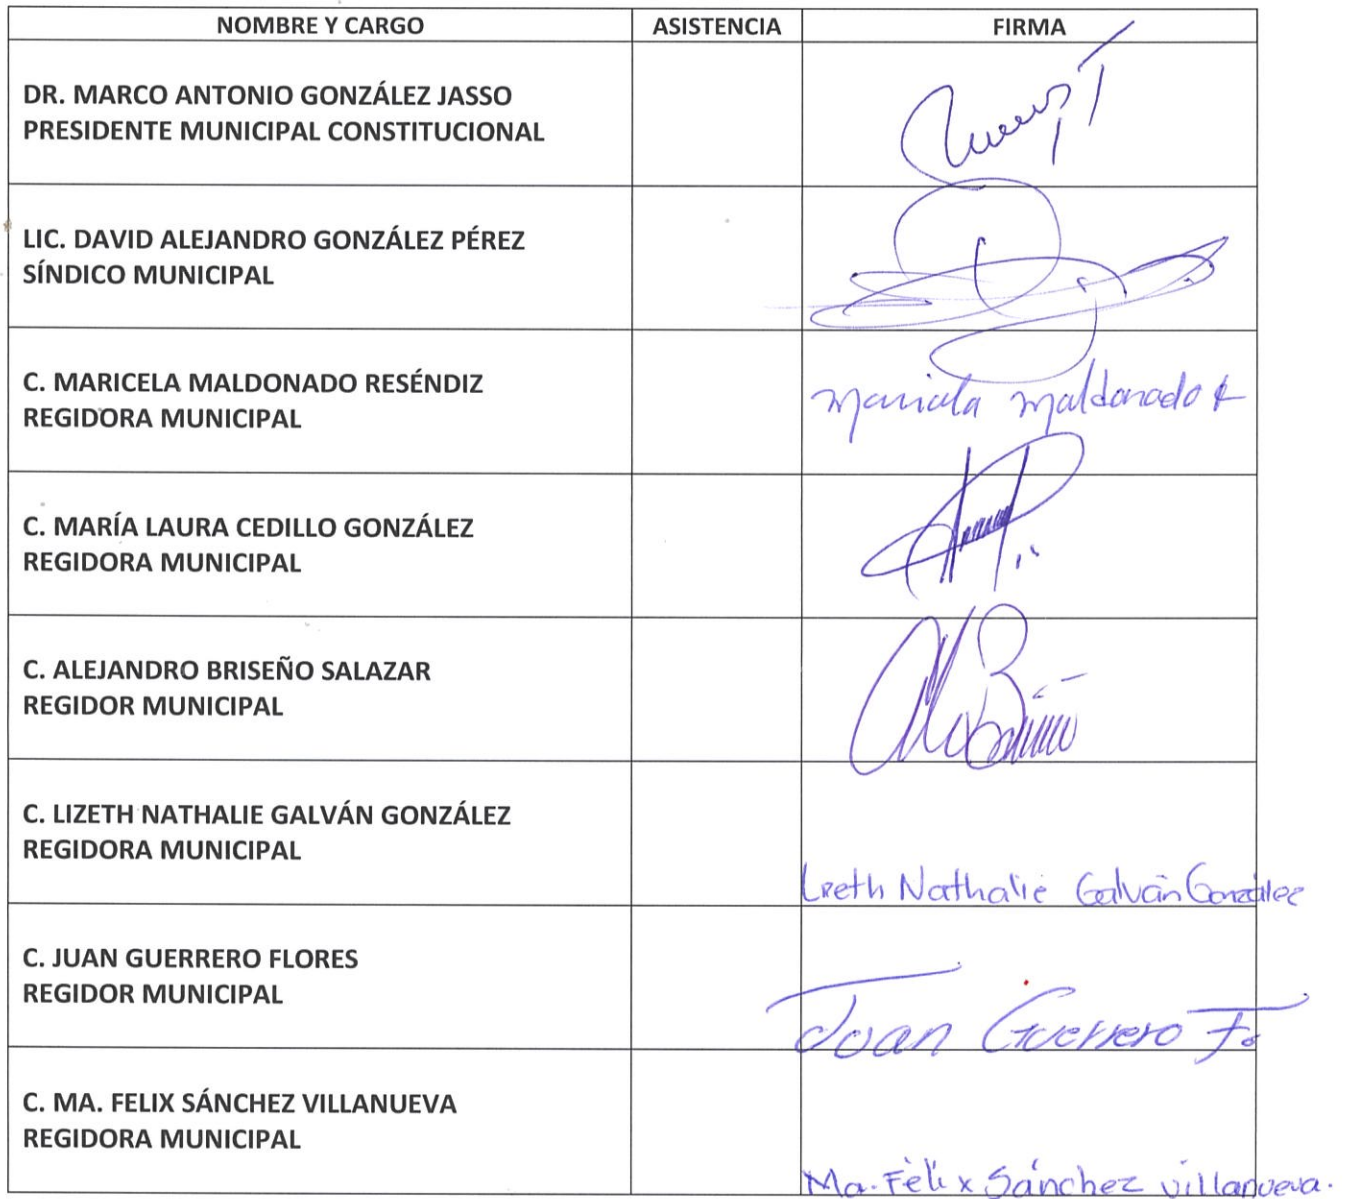 NOMBRE Y CARGO ASISTENCIA FIRMA
DR. MARCO ANTONIO GONZÁLEZ JASSO
PRESIDENTE MUNICIPAL CONSTITUCIONAL
LIC. DAVID ALEJANDRO GONZÁLEZ PÉREZ
SÍNDICO MUNICIPAL
C. MARICELA MALDONADO RESÉNDIZ
REGIDORA MUNICIPAL
Maricela Maldonado R
C. MARÍA LAURA CEDILLO GONZÁLEZ
REGIDORA MUNICIPAL
C. ALEJANDRO BRISEÑO SALAZAR
REGIDOR MUNICIPAL
C. LIZETH NATHALIE GALVÁN GONZÁLEZ
REGIDORA MUNICIPAL
Lizeth Nathalie Galván González
C. JUAN GUERRERO FLORES
REGIDOR MUNICIPAL
Juan Guerrero F.
C. MA. FELIX SÁNCHEZ VILLANUEVA
REGIDORA MUNICIPAL
Ma. Félix Sánchez villanueva.